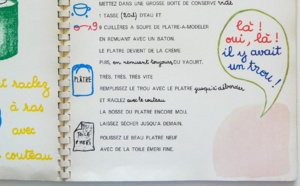 METTEZ DANS UNE GROSSE BOITE DE CONSERVE vide
1 TASSE (bol) D'EAU ET
9 CUILLÈRES A SOUPE DE PLATRE-A-MODELER
EN REMUANT AVEC UN BATON.
LE PLATRE DEVIENT DE LA CRÈME
PUIS, en remuant toujours, DU YAOURT.
PLÂTRE
TRES, TRES, TRES VITE
REMPLISSEZ LE TROU AVEC LE PLATRE jusqu'à déborder
ET RACLEZ avec le couteau
LA BOSSE DU PLATRE ENCORE MOLL
LAISSEZ SÉCHER JUSQU'A DEMAIN.
POLISSEZ LE BEAU PLATRE NEUF
AVEC DE LA TOILE EMERI FINE.
là !
oui, là !
il y avait
un trou !
t raclez
à ras
avec
couteau